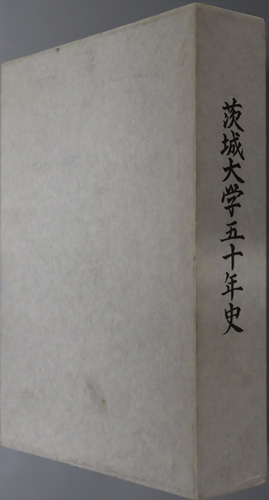 茨城大学五十年史